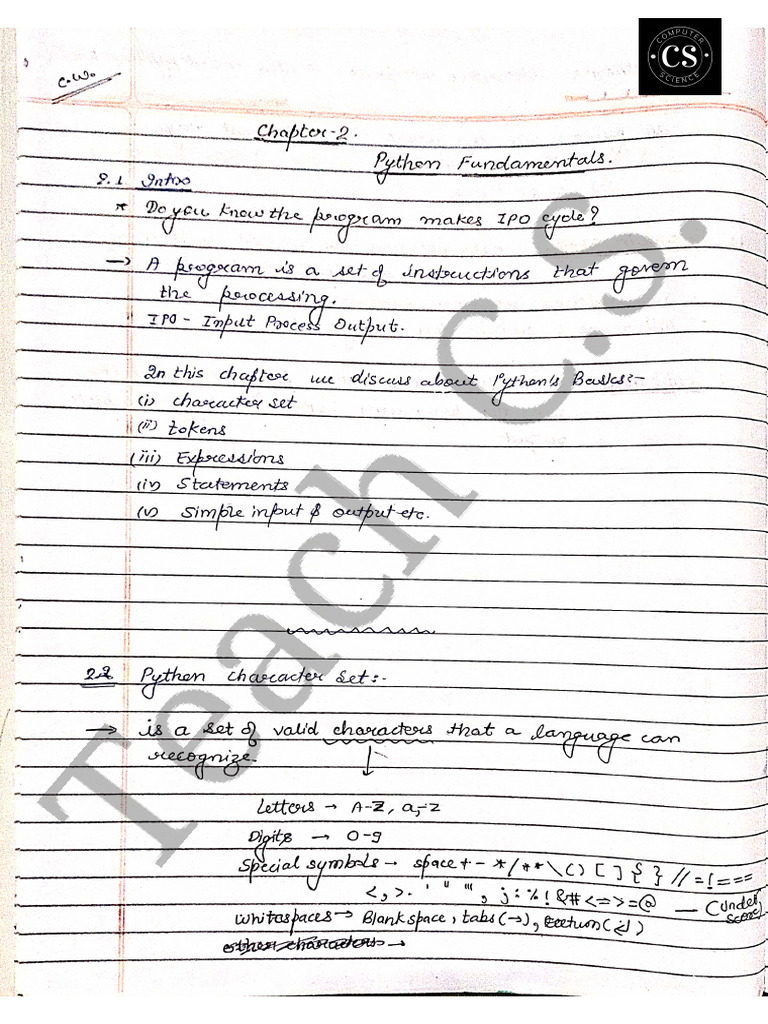 COMPUTER
CS
SCIENCE
C.W.
Chapter-2.
Python Fundamentals.
2.1 Intro
* Do you know the program makes IPO cycle?
→ A program is a set of instructions that govern
the processing.
IPO - Input Process Output.
In this chapter we discuss about Python's Basics:-
(i) character set
(ii) tokens
(iii) Expressions
(iv) Statements
(v) Simple input & output etc.
2.2 Python character set:-
→ is a set of valid characters that a language can
recognize.
Letters → A-Z, a-z
Digits → 0-9
Special symbols → space + - * / ** \ ( ) [ ] { } // = ! = ==
<, > . ' " ''' , ; : % ! & # < = > = @ — (Under
score)
Whitespaces → Blank space, tabs (→), return (↵)
other characters →
Teach C.S.